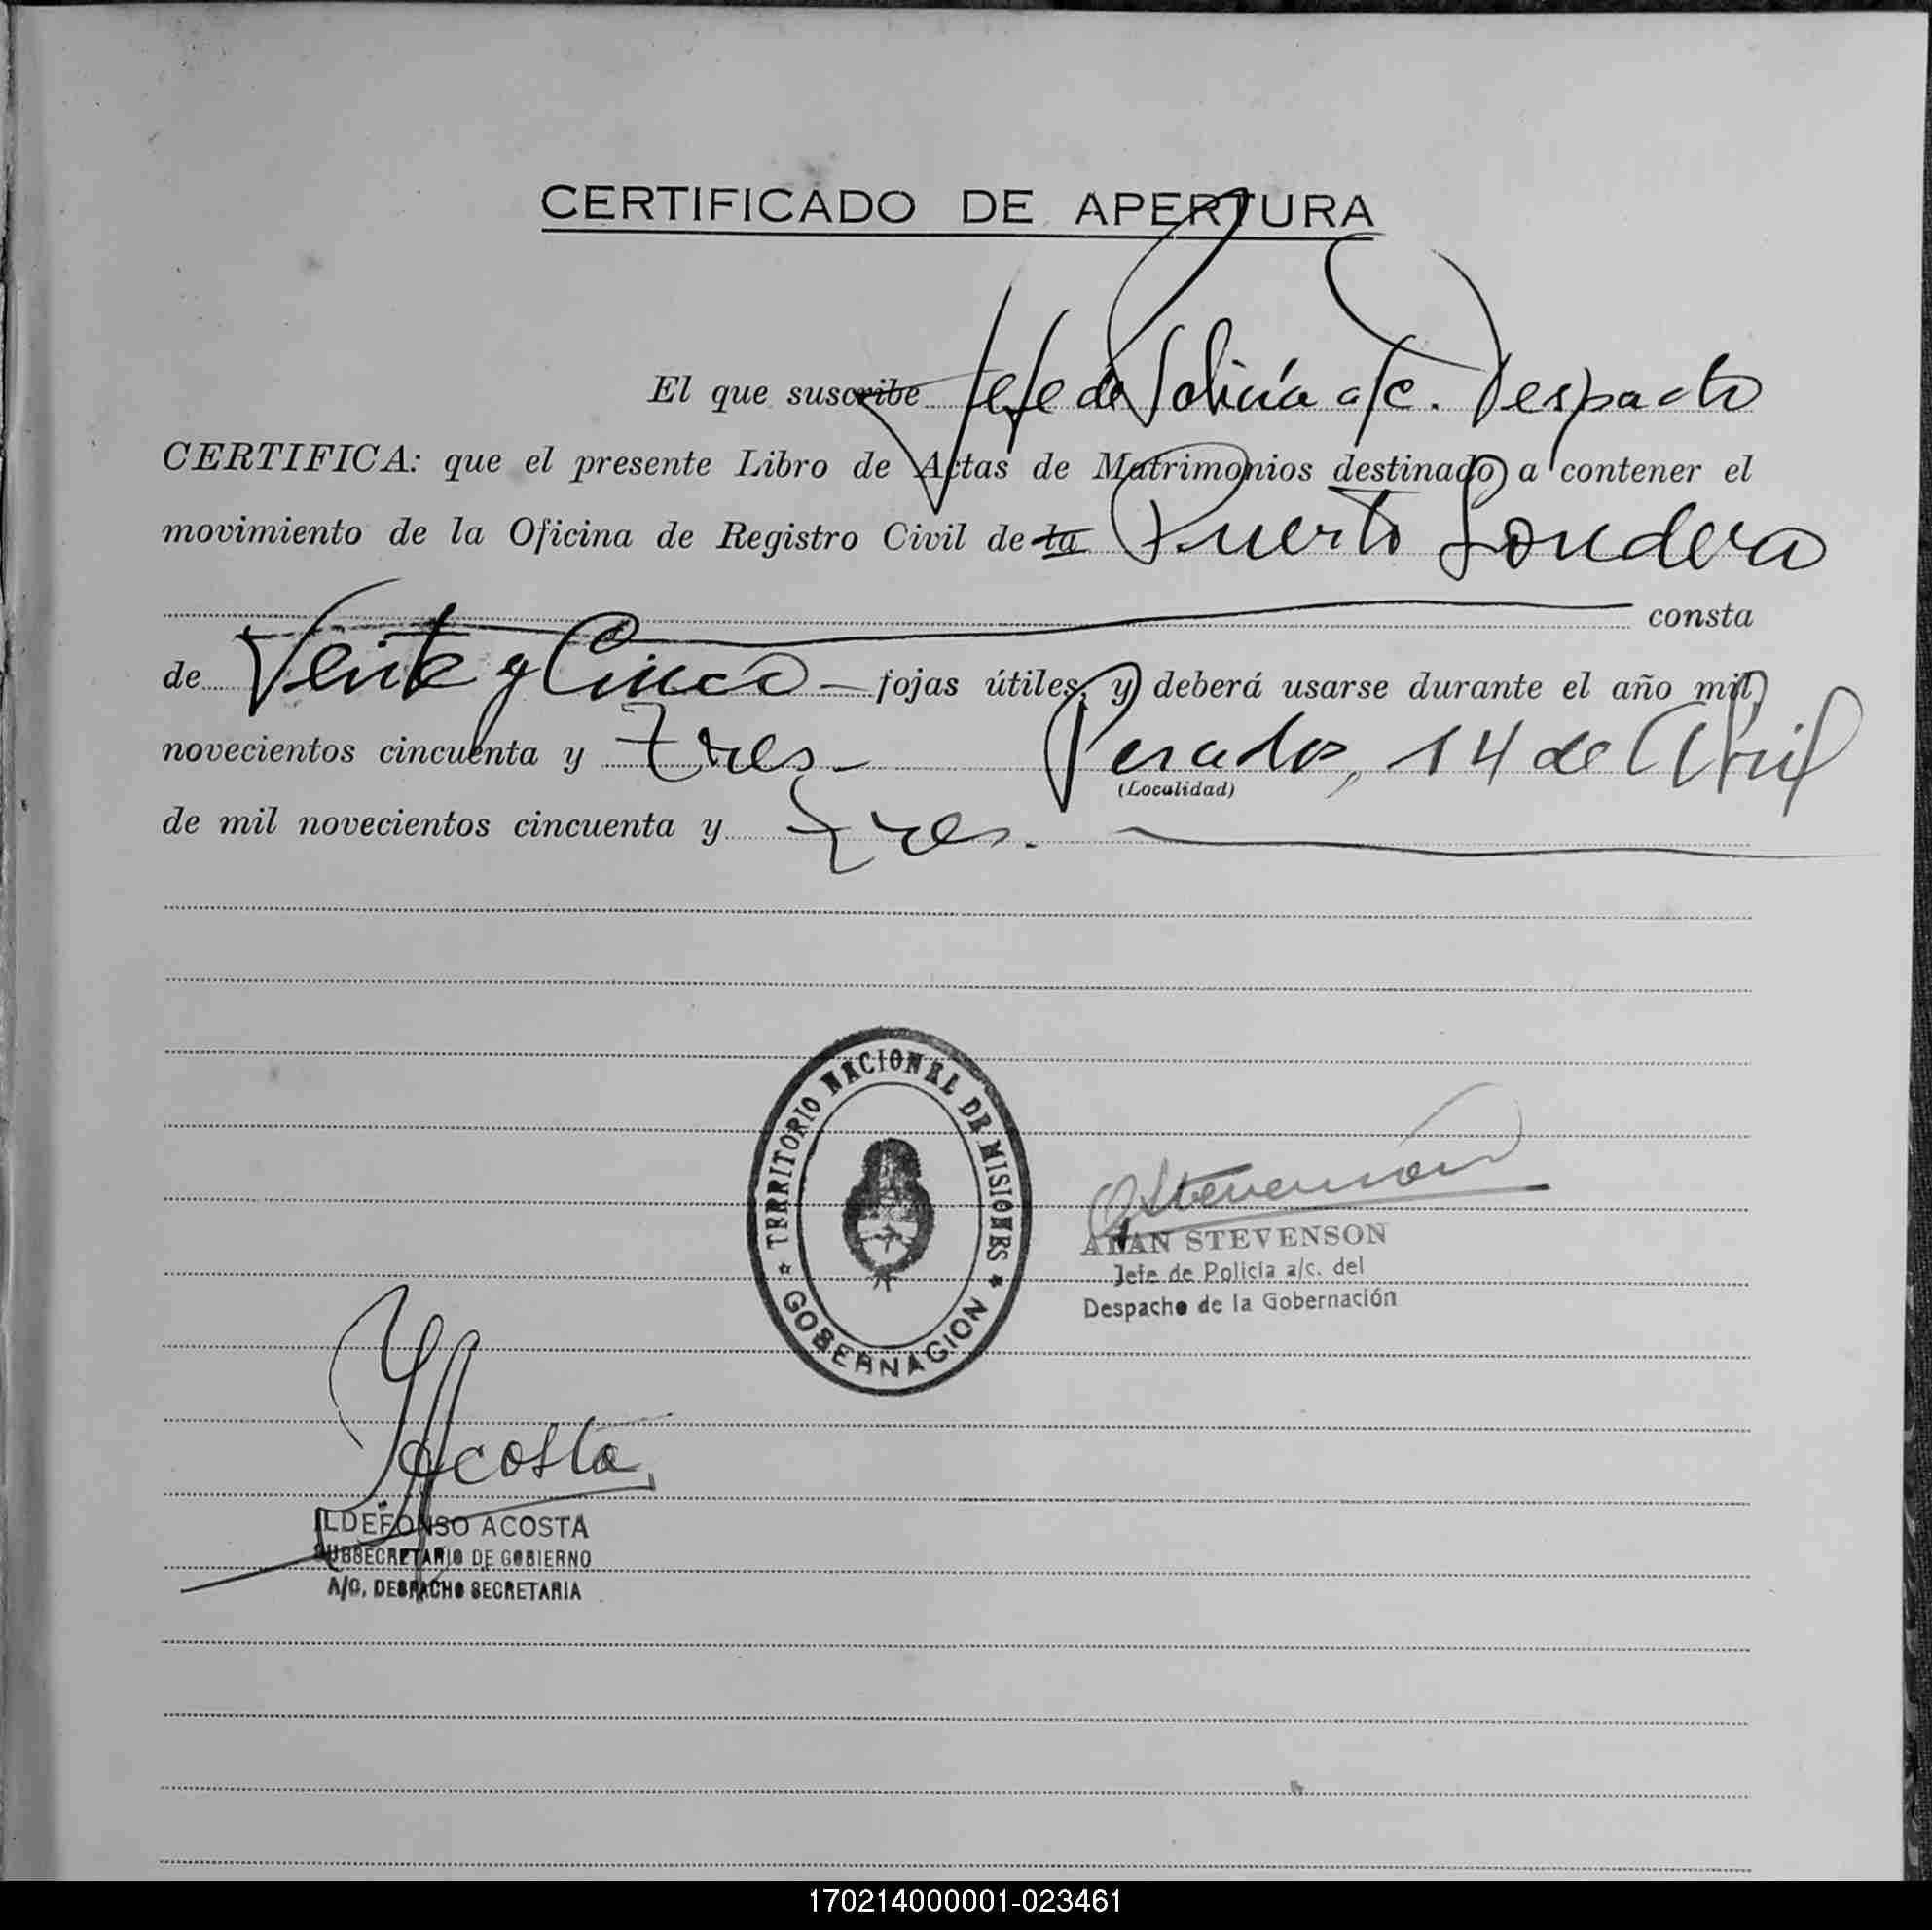 CERTIFICADO DE APERTURA
El que suscribe Jefe de Policía a/c. Despacho
CERTIFICA: que el presente Libro de Actas de Matrimonios destinado a contener el
movimiento de la Oficina de Registro Civil de la Puerto Londero
consta
de Veinte y Cinco — fojas útiles, y deberá usarse durante el año mil
novecientos cincuenta y tres — Posadas, 14 de Abril
(Localidad)
de mil novecientos cincuenta y tres.
TERRITORIO NACIONAL DE MISIONES
GOBERNACION
AStevenson
ALAN STEVENSON
Jefe de Policia a/c. del
Despacho de la Gobernación
Acosta
ILDEFONSO ACOSTA
SUBSECRETARIO DE GOBIERNO
A/C. DESPACHO SECRETARIA
170214000001-023461